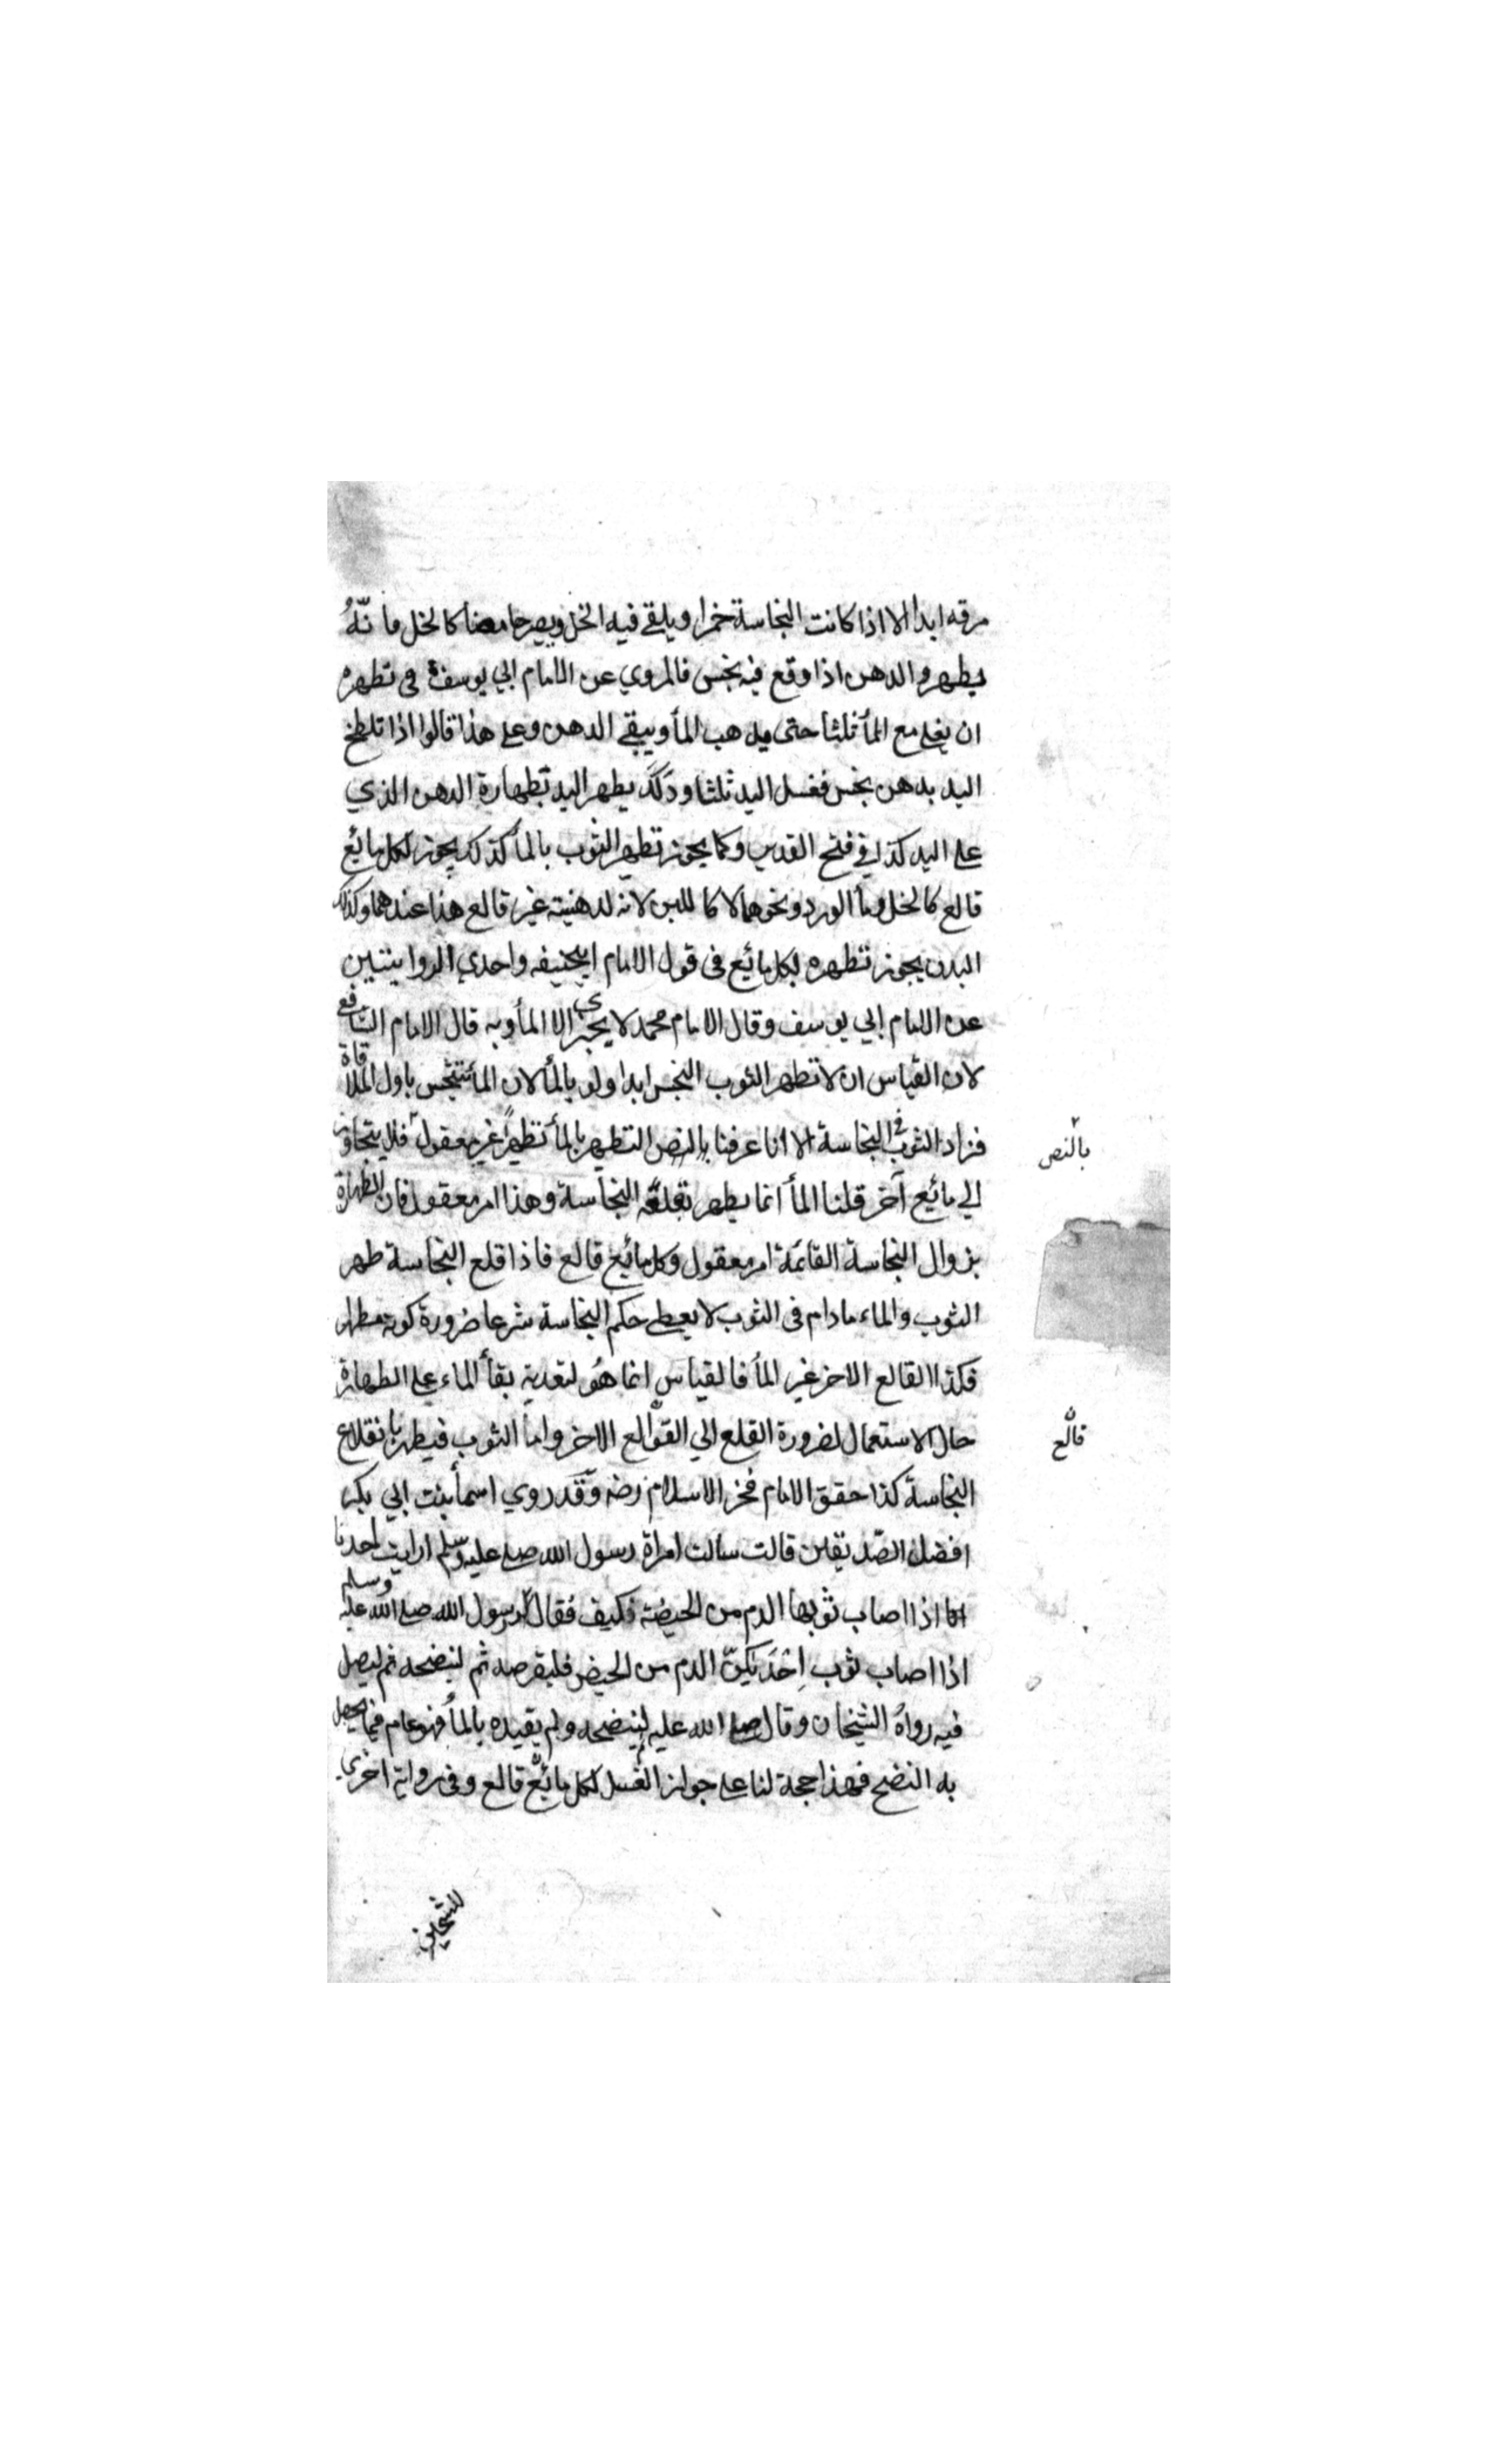 مرقه ابدا الا اذا كانت النجاسة خمرا ويلقى فيه الخل ويصير حامضا كالخل فانّهُ
يطهر والدهن اذا وقع فيه نجس فالمروي عن الامام ابي يوسف في تطهره
ان يغلي مع المأ ثلثا حتى يذهب المأ ويبقى الدهن وعلى هذا قالوا اذا تلطخ
اليد بدهن نجس فغسل اليد ثلثا ودَلَكَ يطهر اليد بطهارة الدهن الذي
على اليد كذا في فتح القدير وكما يجوز تطهير الثوب بالمأ كذلك يجوز لكل مائع
قالع كالخل ومأ الورد ونحوهما لا كاللبن لانه لدهنيته غير قالع هذا عندهما وكذلك
البدن يجوز تطهره لكل مائع في قول الامام ابيحنيفه واحدي الروايتين
عن الامام ابي يوسف وقال الامام محمد لا يجزي الا المأ وبه قال الامام الشافعي
لان القياس ان لا تطهر الثوب النجس ابدا ولو بالمأ لان المأ يتنجس باول الملاقاة
فزاد الثوب في النجاسة الا انا عرفنا بالنص التطهير بالمأ تطهيرا غير معقول فلا يتجاوز
الي مائع آخر قلنا المأ انما يطهر بقلعه النجاسة وهذا امر معقول فان الطهارة
بزوال النجاسة القائمة امر معقول وكل مائع قالع فاذا قلع النجاسة طهر
الثوب والماء مادام في الثوب لا يعطى حكم النجاسة شرعا ضرورة كونه مطهرا
فكذا القالع الاخر غير المأ فالقياس انما هُو لتعدية بقأ الماء على الطهارة
حال الاستعمال لضرورة القلع الي القوالع الاخر واما الثوب فيطهر بانقلاع
النجاسة كذا حقق الامام فخر الاسلام رضه وقد روي اسمأ بنت ابي بكر
افضل الصّديقين قالت سالت امراة رسول الله صلى عليه وسلم ارايت احدنا
اذا اصاب ثوبها الدم من الحيضة فكيف فقال رسول الله صلى الله عليه وسلم
اذا اصاب ثوب اِحْدَيكنّ الدم من الحيض فليقرصه ثم لينضحه ثم ليصل
فيه رواهُ الشيخان وقال صلى الله عليه لينضحه ولم يقيده بالمأ فهو عام فيما يحصل
به النضح فهذا حجة لنا على جواز الغسل لكل مائع قالع وفي رواية اخري
بالنص
قالع
للشيخين